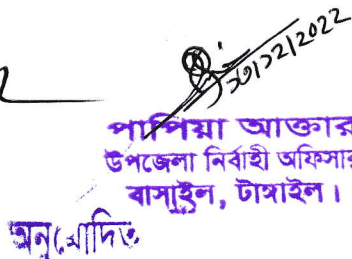 ২৩/১২/2022
পাপিয়া আক্তার
উপজেলা নির্বাহী অফিসার
বাসাইল, টাঙ্গাইল।
অনুমোদিত